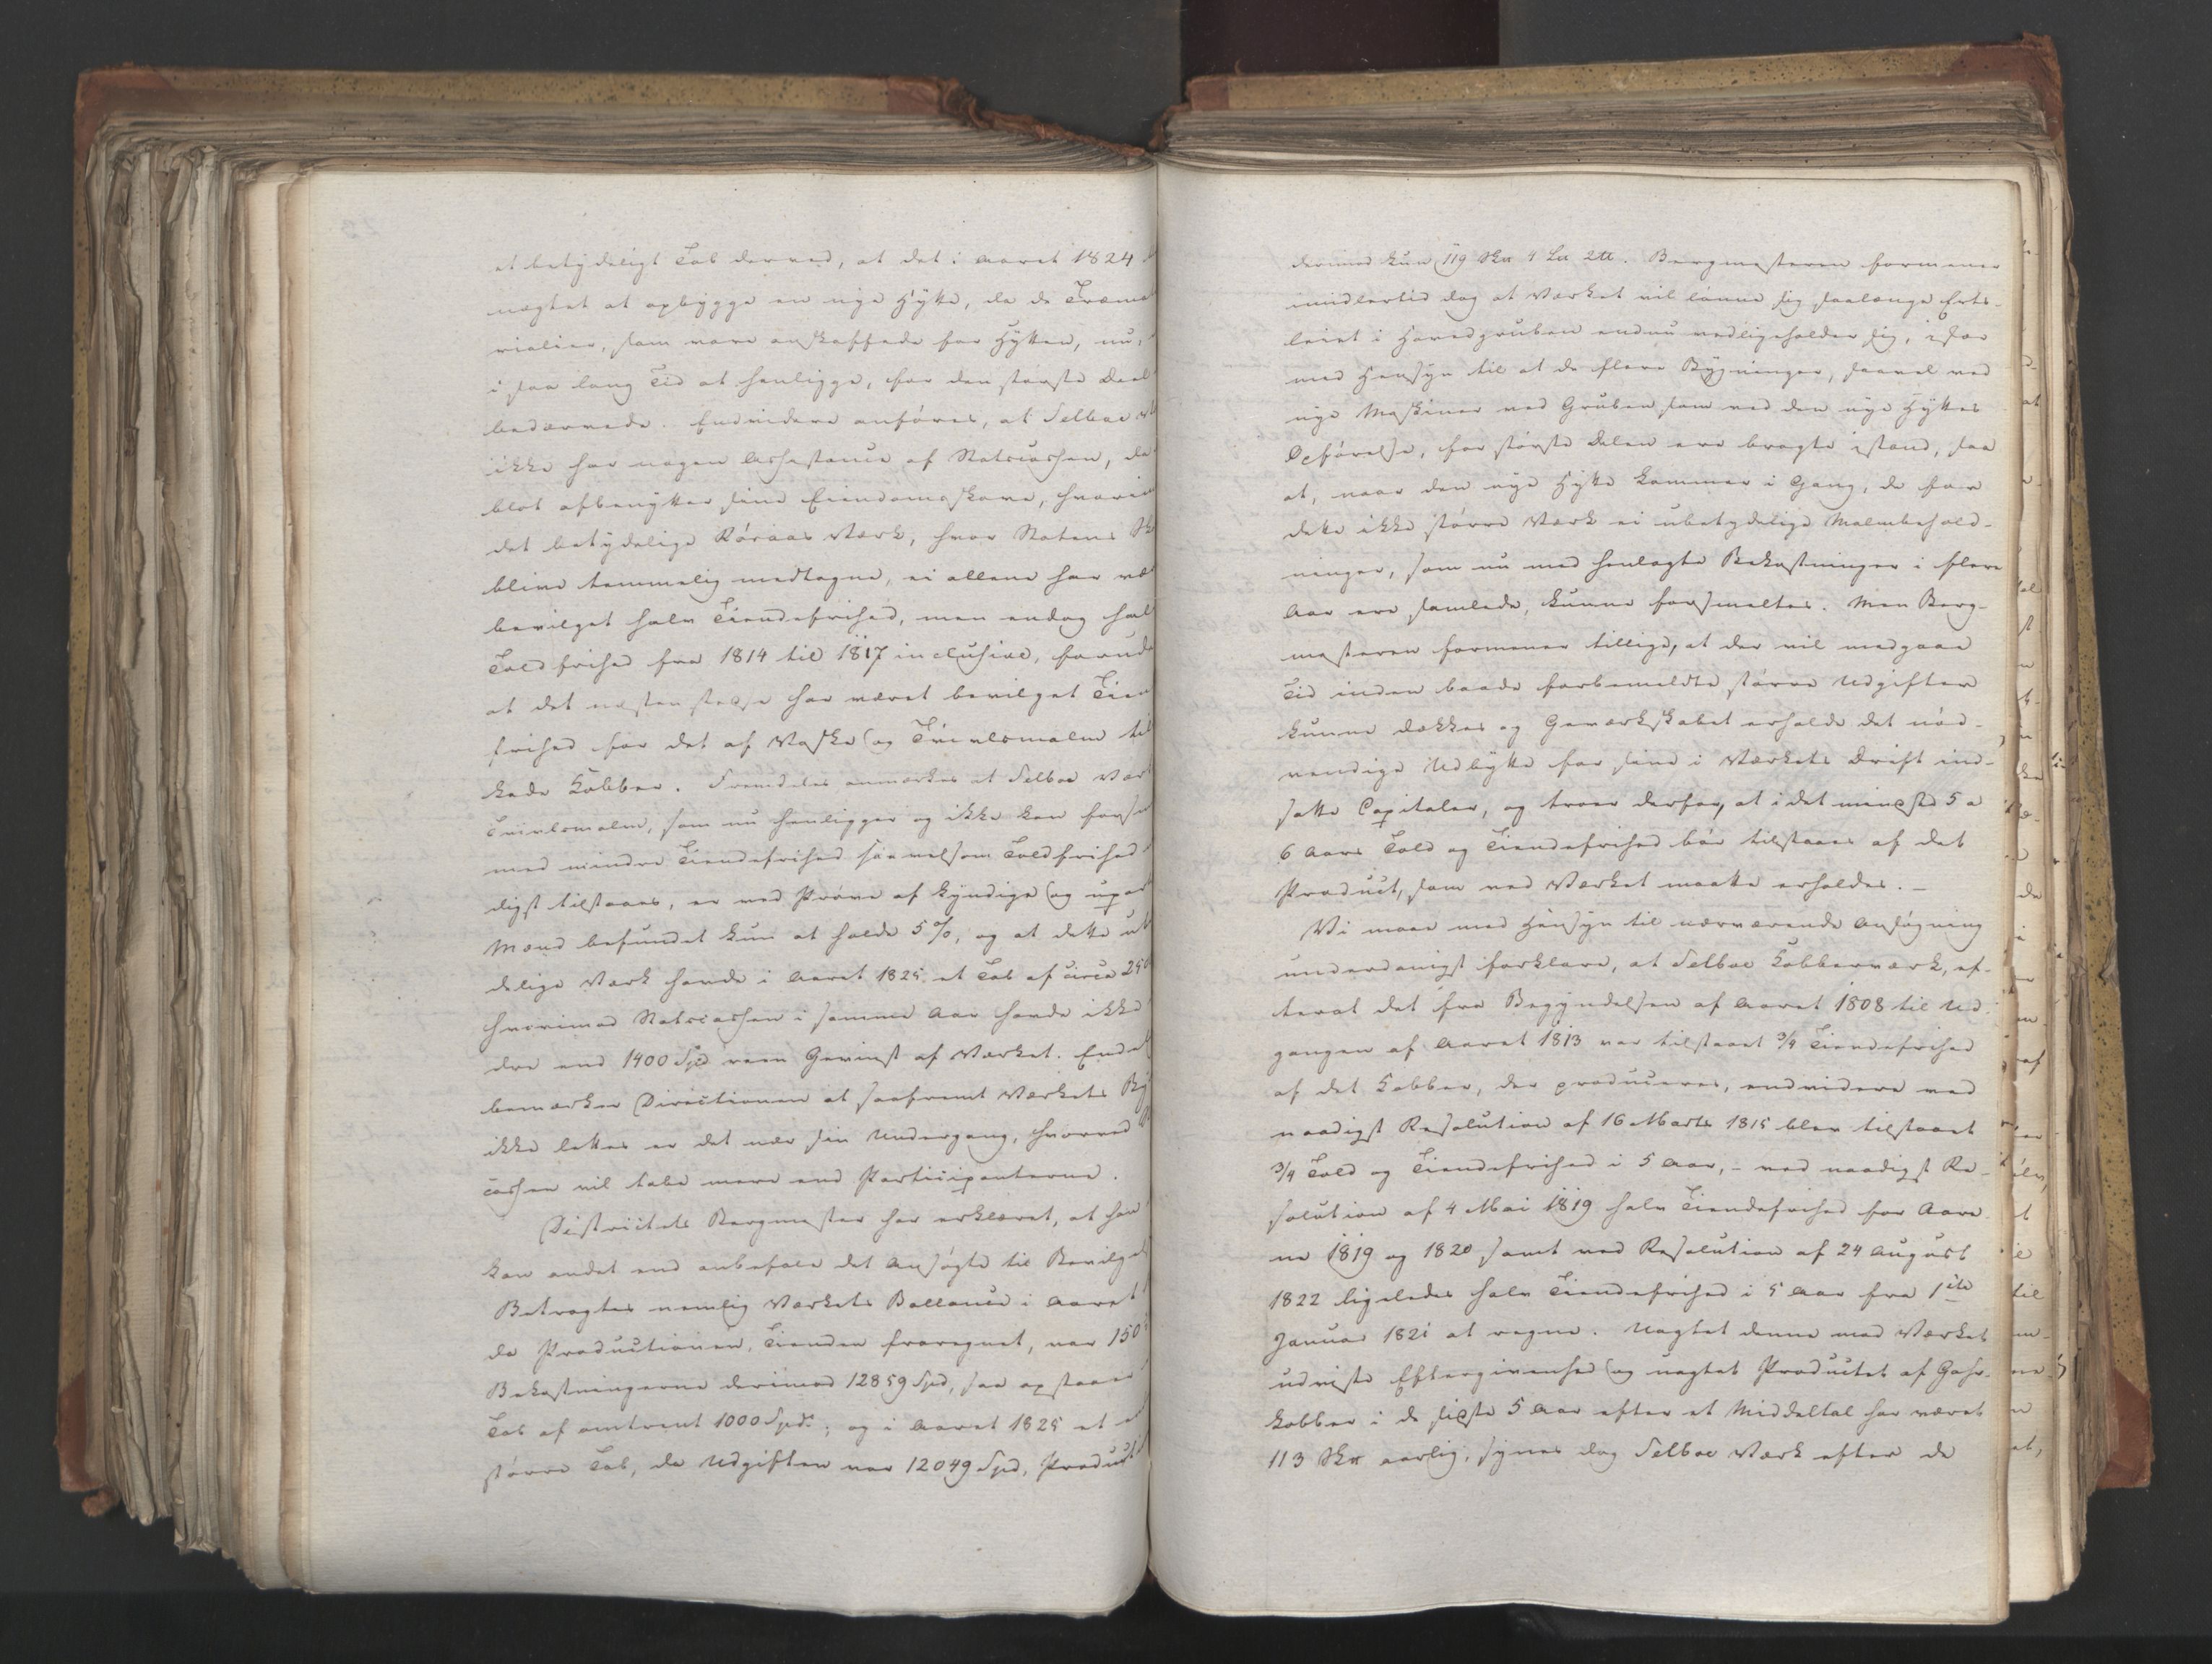 et betydeligt Tab derved, at det i Aaret 1824
nægtet at opbygge en nye Hytte, da de Træma
rialier, som vare anskaffede for Hytten, nu,
i saa lang Tid at henligge, for den største Deel
bedærvede. Endvidere anføres, at Selboe
ikke har nogen Assistance af Statscassen, da
blot afbenytter sine Eiendomsskove, hvori
det betydelige Röraas Værk, hvor Statens Sk
blive temmelig medtagne, ei allene har væ
bevilget halv Tiendefrihed, men endog hal
Toldfrihed fra 1814 til 1817 inclusive, forud
at det næsten stedse har været bevilget Tien
frihed for det af Vaske og Tvivlsmalm til
kede Kobber. Fremdeles anmærkes at Selboe Vær
Tvivlsmalm, som nu henligger og ikke kan forsm
med mindre Tiendefrihed saavelsom Toldfrihed
digst tilstaaes, er ved Prøve af kyndige og upar
Mænd befundet kun at holde 5%, og at dette ub
delige Værk havde i Aaret 1825 et Tab af circa 250
hvorimod Statscassen i samme Aar havde ikke
dre end 1400 Spd reen Gevinst af Værket. Endel
bemærker Directionen at saafremt Værkets By
ikke lettes er det nær sin Undergang, hvorved
cassen vil tabe mere end Participanterne.
Districtets Bergmester har erklæret, at han
kan andet end anbefale det Ansøgte til Bevilgel
Betragtes nemlig Værkets Ballance i Aaret
da Productionen, Tienden fraregnet, var 150
Bekostningerne derimod 12859 Spd, saa opstaaer
Tab af omtrent 1000 Spd; og i Aaret 1825 et
større Tab, da Udgiften var 12049 Spd, Producti
derimod kun 119 Sk℔ 4 L℔ 2℔. Bergmesteren formener
imidlertid dog at Værket vil lønne sig saalænge Erts-
leiet i Hovedgruben endnu vedligeholder sig, især
med Hensyn til at de flere Bygninger, saavel ved
nye Maskiner ved Gruben som ved den nye Hyttes
Opførelse, for største Delen ere bragte istand, saa
at, naar den nye Hytte kommer i Gang, de for
dette ikke større Værk ei ubetydelige Malmbehold-
ninger, som nu med henlagte Bekostninger i flere
Aar ere samlede, kunne forsmeltes. Men Berg-
mesteren formener tillige, at der vil medgaae
Tid inden baade forbemeldte større Udgifter
kunne dækkes og Gewerkskabet erholde det nød-
vendige Udbytte for sine i Værkets Drift ind-
satte Capitaler, og troer derfor, at i det mindste 5 a
6 Aars Told og Tiendefrihed bør tilstaaes af det
Product, som ved Værket maatte erholdes. –
Vi maae med Hensyn til nærværende Ansøgning
underdanigst forklare, at Selboe Kobberværk, ef-
terat det fra Begyndelsen af Aaret 1808 til Ud-
gangen af Aaret 1813 var tilstaaet 3/4 Tiendefrihed
af det Kobber, der produceres, endvidere ved
naadigst Resolution af 16 Marts 1815 blev tilstaaet
3/4 Told og Tiendefrihed i 5 Aar, – ved naadigst Re-
solution af 4 Mai 1819 halv Tiendefrihed for Aare-
ne 1819 og 1820, samt ved Resolution af 24 August
1822 ligeledes halv Tiendefrihed i 5 Aar fra 1ste
Januar 1821 at regne. Uagtet denne mod Værket
udviste Eftergivenhed og uagtet Productet af Gahr-
kobber i de sidste 5 Aar efter et Middeltal har været
113 Sk℔ aarlig, synes dog Selboe Værk efter de